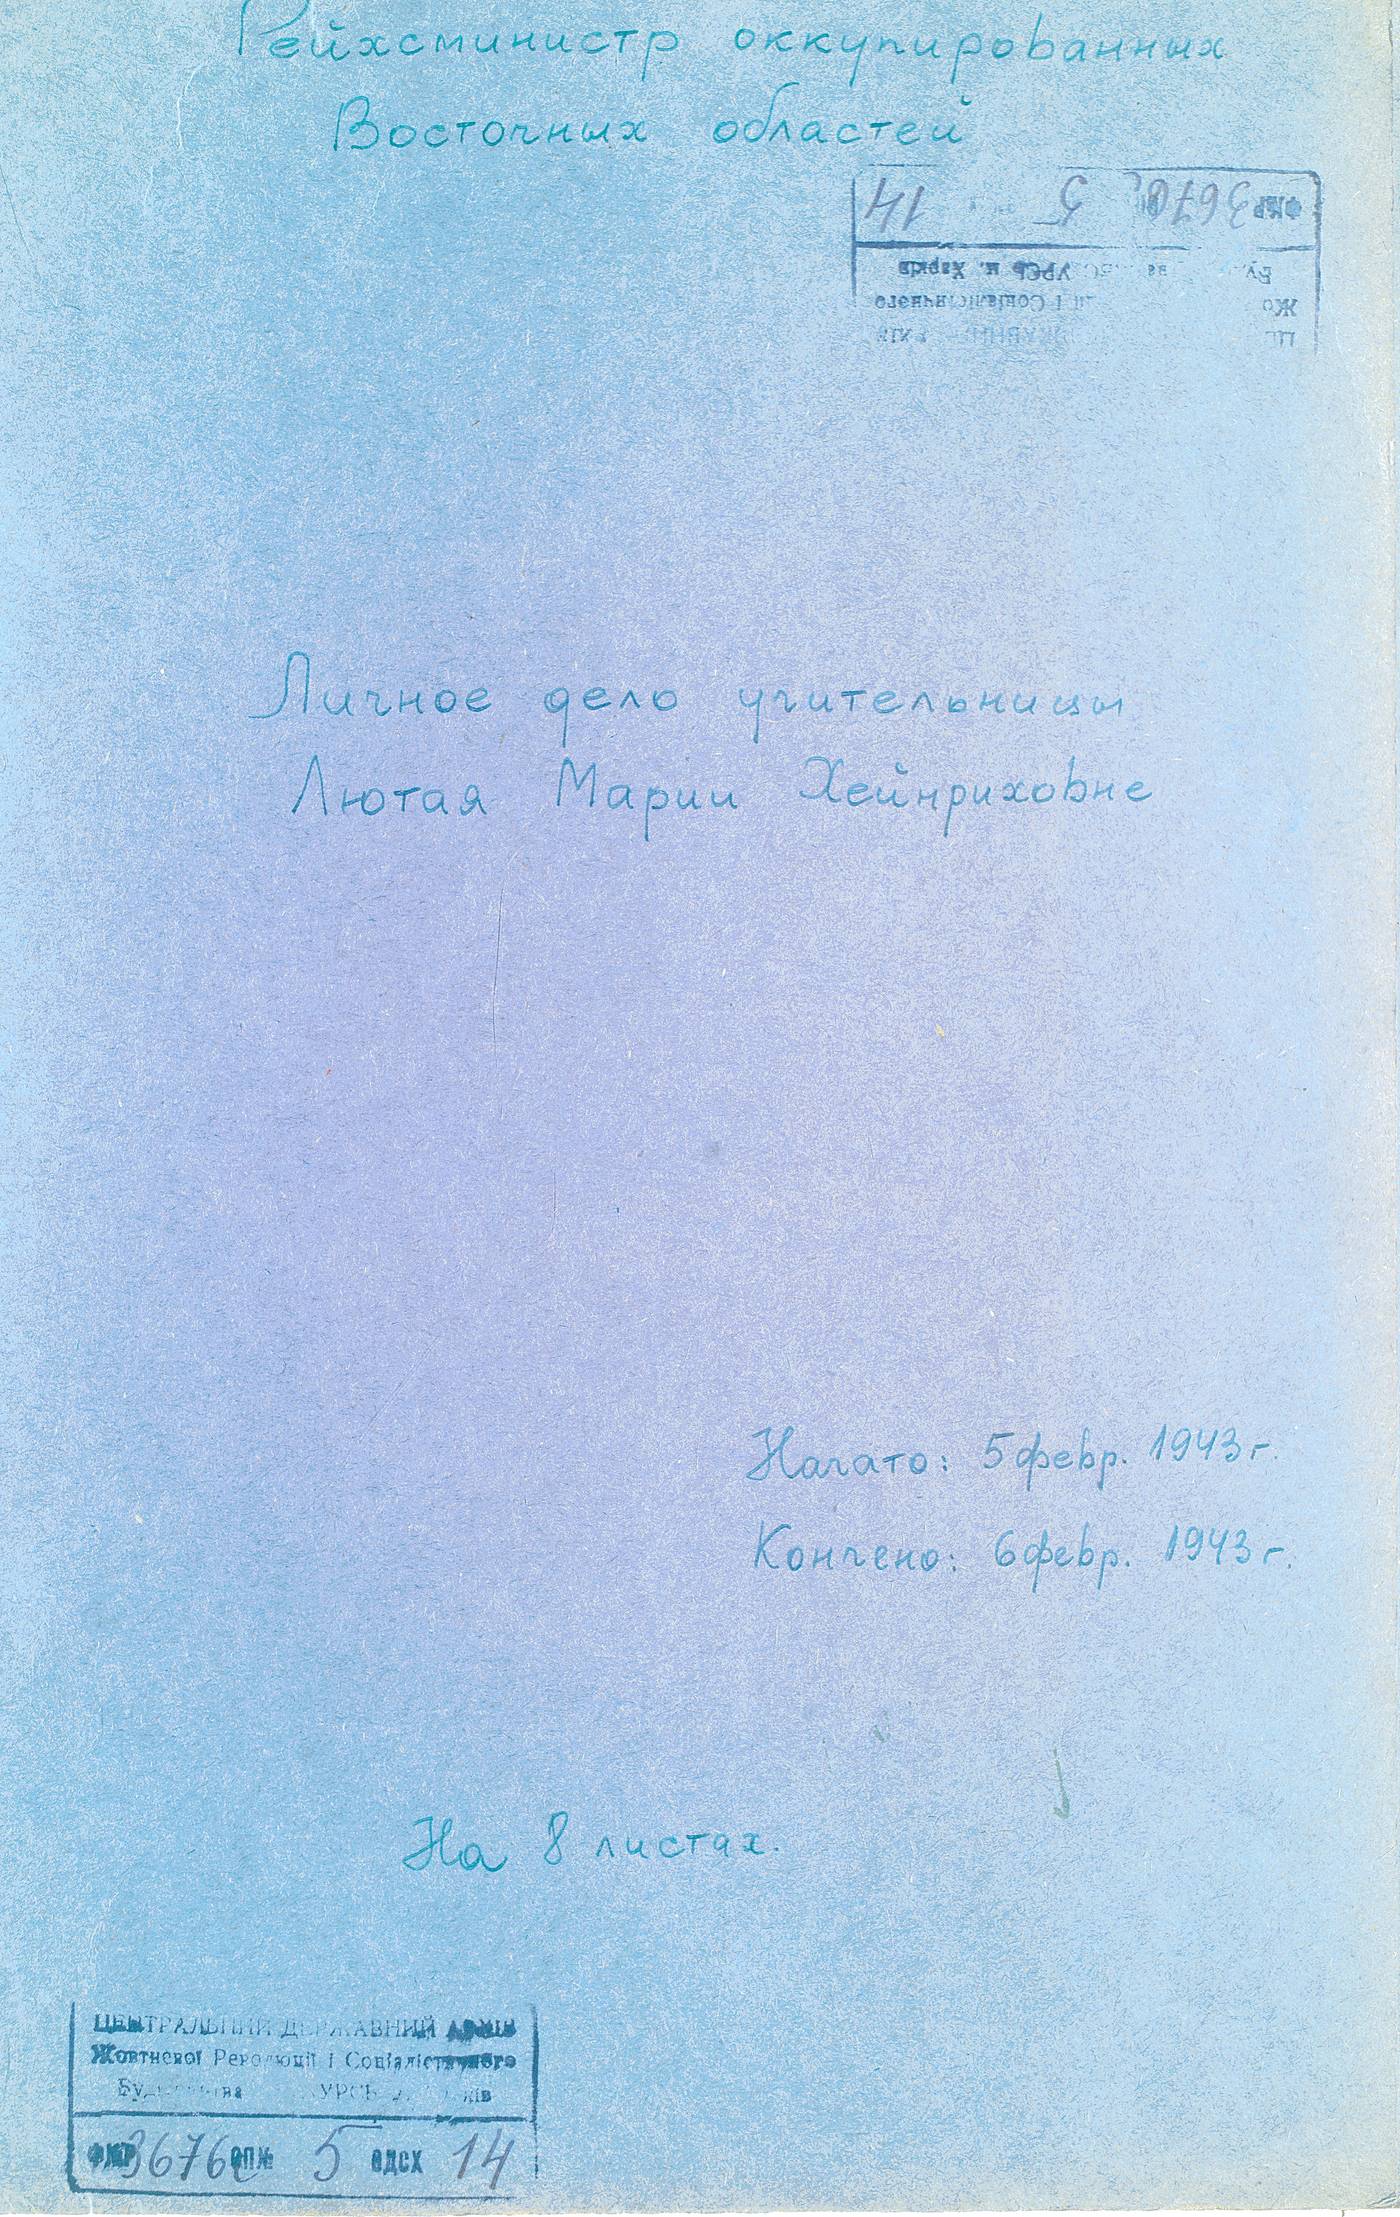 Рейхсминистр оккупированных
Восточных областей
3676 5 14
УРСР м. Харків
Личное дело учительницы
Лютая Марии Хейнриховне
Начато: 5 февр. 1943 г.
Кончено: 6 февр. 1943 г.
На 8 листах.
ЦЕНТРАЛЬНИЙ ДЕРЖАВНИЙ АРХІВ
Жовтневої Революції і Соціалістичного
УРСР
3676 ОП№ 5 ОДСХ 14